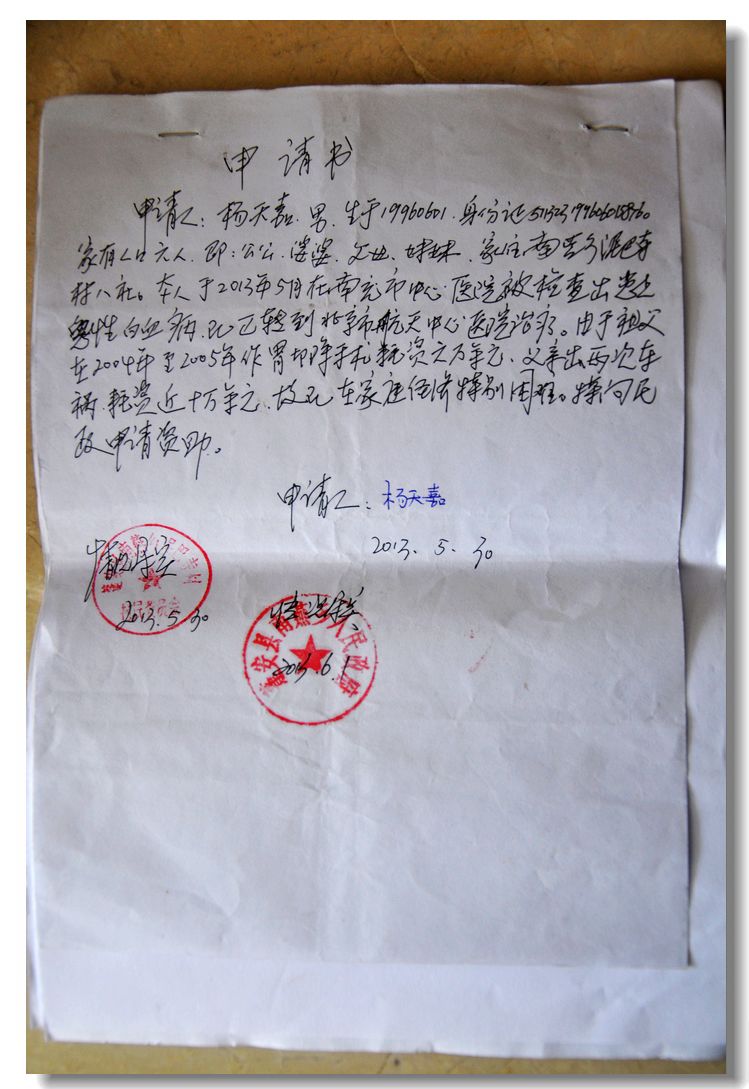 申请书
申请人：杨天嘉．男．生于19960601．身份证
家有人口六人．即：公公、婆婆、父母、妹妹、家住南燕乡
村八社。本人于2013年5月在南充市中心医院被检查出患上
性白血病，现已转到北京市航天中心医院治疗。由于祖父
在2004年至2005年作胃切除手术耗资六万余元、父亲出两次车
祸．耗资近十万余元．故现在家庭经济特别困难。特向民
政申请资助。
申请人：杨天嘉
2013．5．30
情况属实
2013．5．30
情况属实
2013．6．1